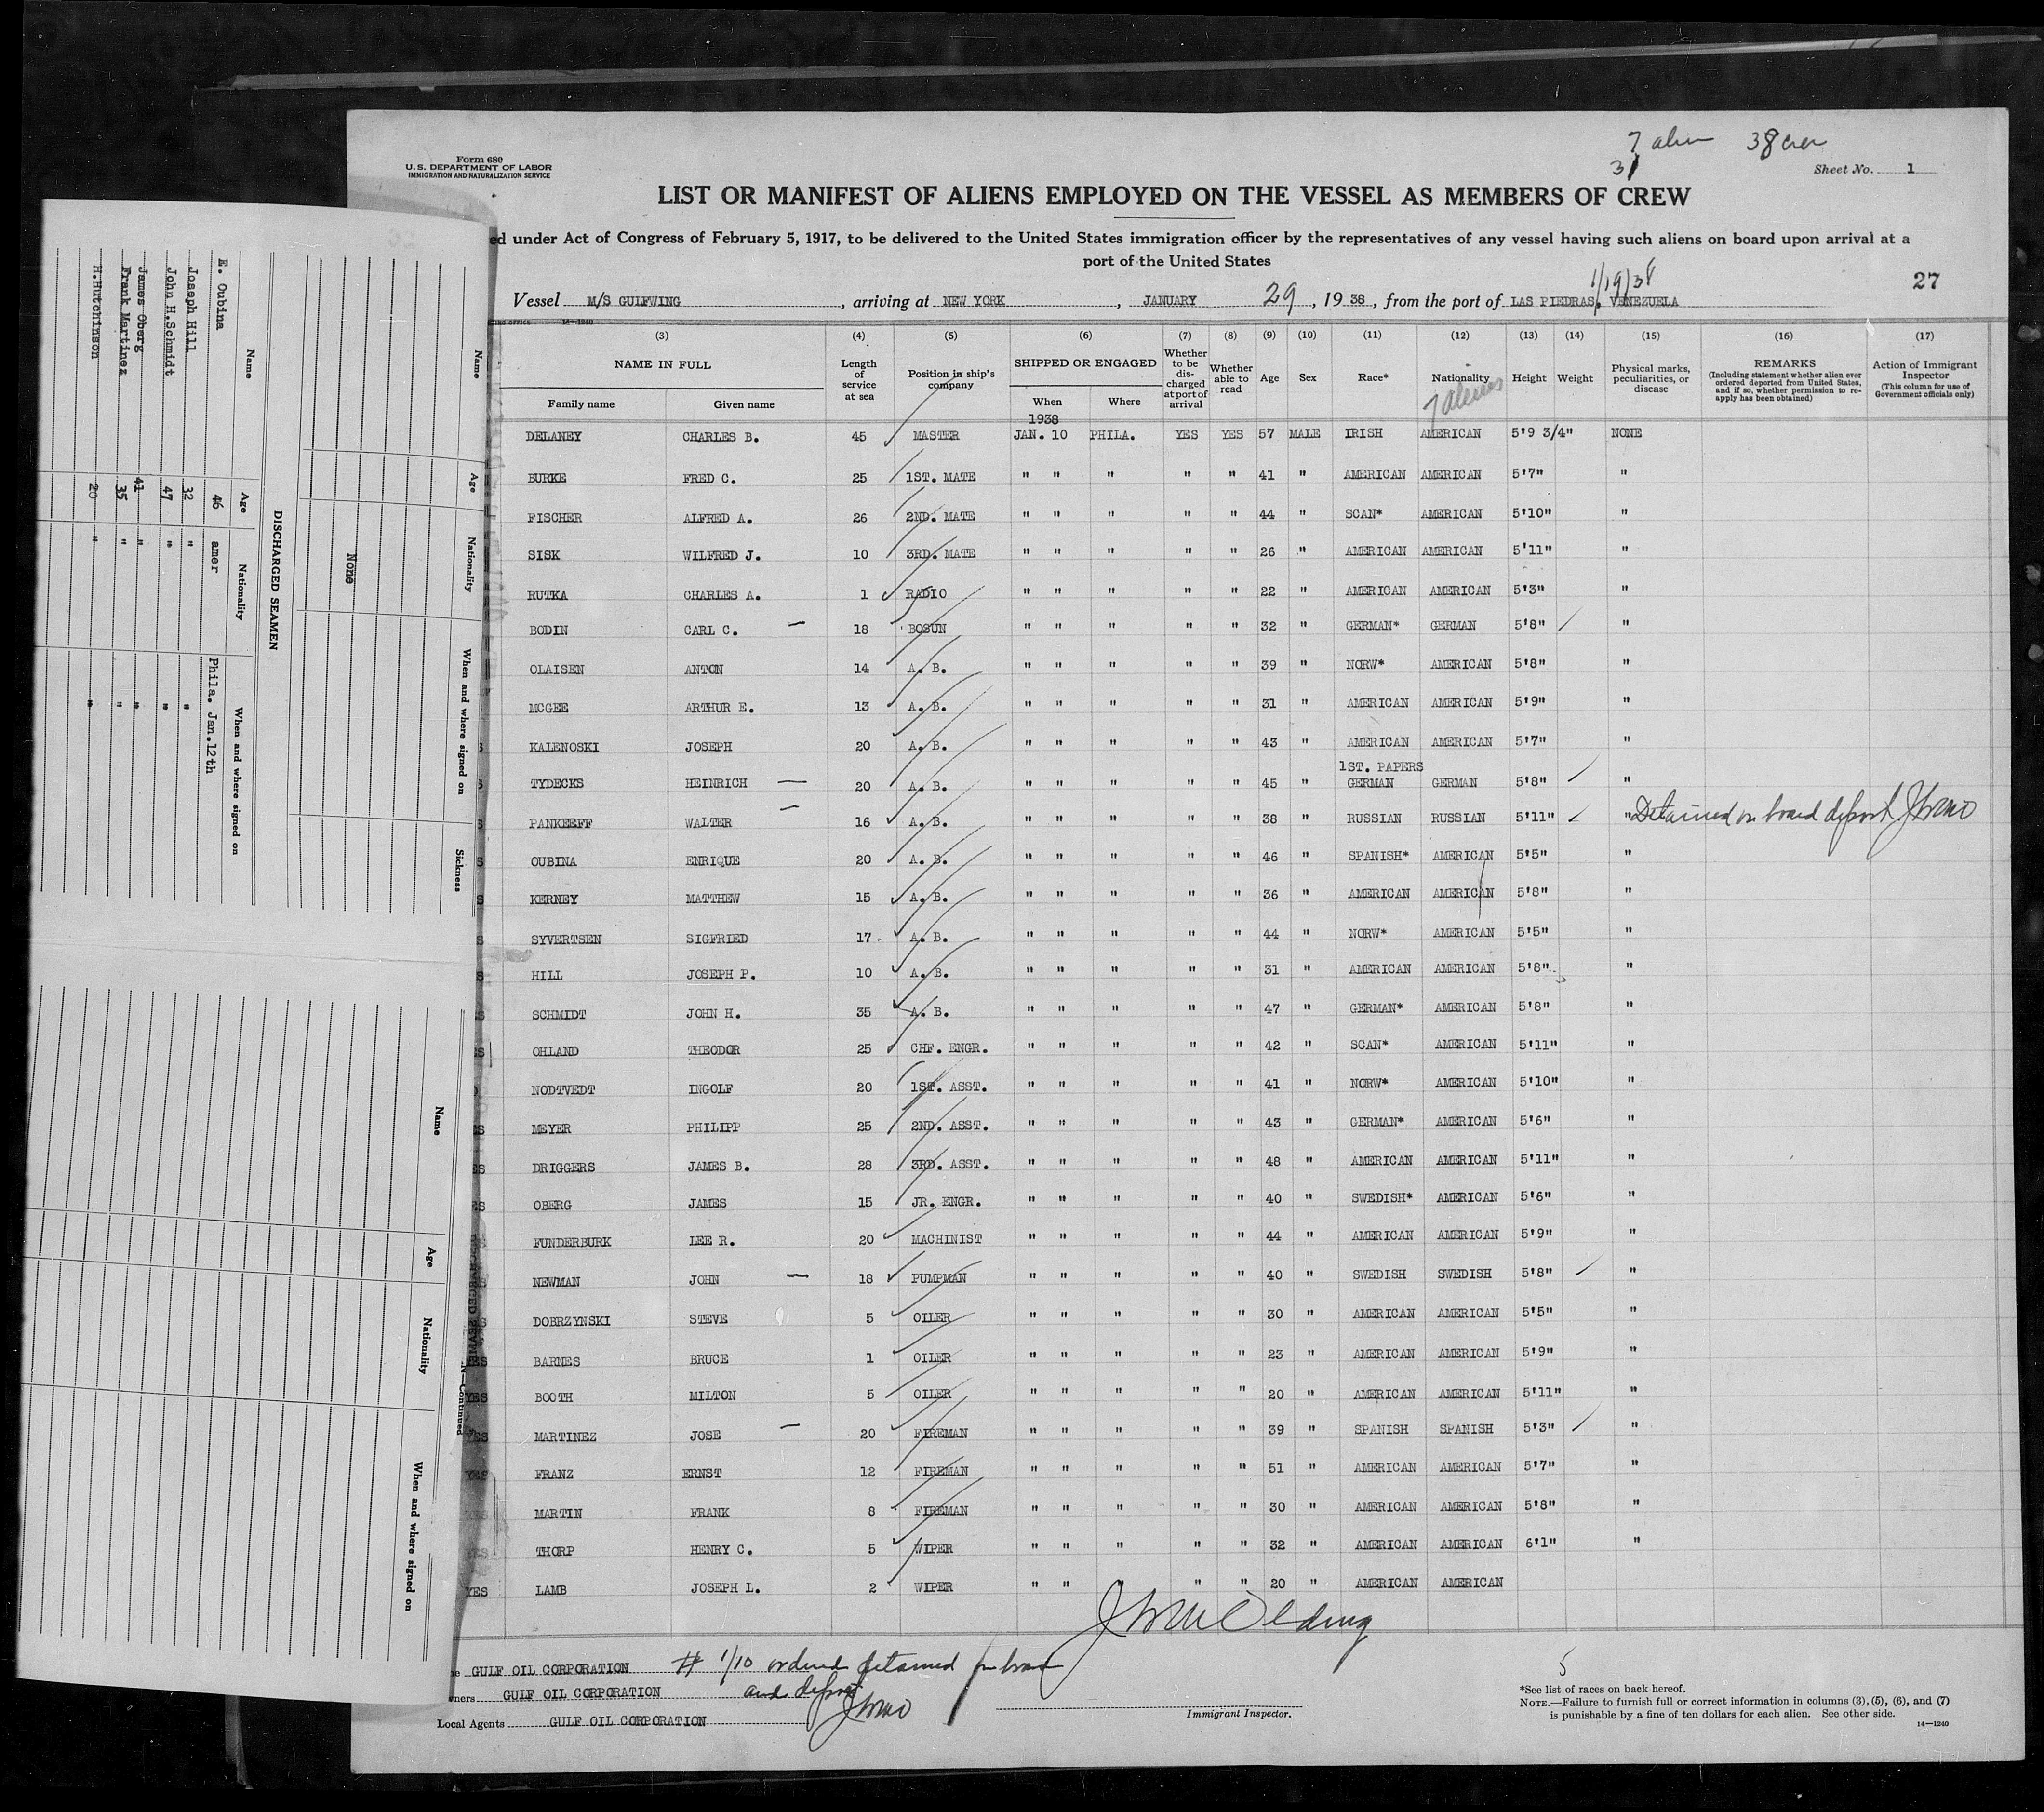 7 alien 38 crew
31
Form 680
U.S. DEPARTMENT OF LABOR
IMMIGRATION AND NATURALIZATION SERVICE
Sheet No. 1
LIST OR MANIFEST OF ALIENS EMPLOYED ON THE VESSEL AS MEMBERS OF CREW
ed under Act of Congress of February 5, 1917, to be delivered to the United States immigration officer by the representatives of any vessel having such aliens on board upon arrival at a
port of the United States
1/19/38
27
Vessel M/S GULFWING, arriving at NEW YORK, JANUARY 29, 1938, from the port of LAS PIEDRAS, VENEZUELA
14—1240
(3) (4) (5) (6) (7) (8) (9) (10) (11) (12) (13) (14) (15) (16) (17)
NAME IN FULL
Family name
Given name
Length of service at sea
Position in ship's company
SHIPPED OR ENGAGED
When
Where
Whether to be discharged at port of arrival
Whether able to read
Age
Sex
Race*
Nationality
Height
Weight
Physical marks, peculiarities, or disease
REMARKS
(Including statement whether alien ever ordered deported from United States, and if so, whether permission to re-apply has been obtained)
Action of Immigrant Inspector
(This column for use of Government officials only)
7 aliens
1938
DELANEY CHARLES B. 45 MASTER JAN. 10 PHILA. YES YES 57 MALE IRISH AMERICAN 5'9 3/4" NONE
BURKE FRED C. 25 1ST. MATE " " " " " 41 " AMERICAN AMERICAN 5'7" "
FISCHER ALFRED A. 26 2ND. MATE " " " " " 44 " SCAN* AMERICAN 5'10" "
SISK WILFRED J. 10 3RD. MATE " " " " " 26 " AMERICAN AMERICAN 5'11" "
RUTKA CHARLES A. 1 RADIO " " " " " 22 " AMERICAN AMERICAN 5'3" "
BODIN CARL C. — 18 BOSUN " " " " " 32 " GERMAN* GERMAN 5'8" "
OLAISEN ANTON 14 A. B. " " " " " 39 " NORW* AMERICAN 5'8" "
MCGEE ARTHUR E. 13 A. B. " " " " " 31 " AMERICAN AMERICAN 5'9" "
KALENOSKI JOSEPH 20 A. B. " " " " " 43 " AMERICAN AMERICAN 5'7" "
1ST. PAPERS
TYDECKS HEINRICH — 20 A. B. " " " " " 45 " GERMAN GERMAN 5'8" "
PANKEEFF WALTER — 16 A. B. " " " " " 38 " RUSSIAN RUSSIAN 5'11" " Detained on board deport
OUBINA ENRIQUE 20 A. B. " " " " " 46 " SPANISH* AMERICAN 5'5" "
KERNEY MATTHEW 15 A. B. " " " " " 36 " AMERICAN AMERICAN 5'8" "
SYVERTSEN SIGFRIED 17 A. B. " " " " " 44 " NORW* AMERICAN 5'5" "
HILL JOSEPH P. 10 A. B. " " " " " 31 " AMERICAN AMERICAN 5'8" "
SCHMIDT JOHN H. 35 A. B. " " " " " 47 " GERMAN* AMERICAN 5'8" "
OHLAND THEODOR 25 CHF. ENGR. " " " " " 42 " SCAN* AMERICAN 5'11" "
NODTVEDT INGOLF 20 1ST. ASST. " " " " " 41 " NORW* AMERICAN 5'10" "
MEYER PHILIPP 25 2ND. ASST. " " " " " 43 " GERMAN* AMERICAN 5'6" "
DRIGGERS JAMES B. 28 3RD. ASST. " " " " " 48 " AMERICAN AMERICAN 5'11" "
OBERG JAMES 15 JR. ENGR. " " " " " 40 " SWEDISH* AMERICAN 5'6" "
FUNDERBURK LEE R. 20 MACHINIST " " " " " 44 " AMERICAN AMERICAN 5'9" "
NEWMAN JOHN — 18 PUMPMAN " " " " " 40 " SWEDISH SWEDISH 5'8" "
DOBRZYNSKI STEVE 5 OILER " " " " " 30 " AMERICAN AMERICAN 5'5" "
YES BARNES BRUCE 1 OILER " " " " " 23 " AMERICAN AMERICAN 5'9" "
YES BOOTH MILTON 5 OILER " " " " " 20 " AMERICAN AMERICAN 5'11" "
YES MARTINEZ JOSE — 20 FIREMAN " " " " " 39 " SPANISH SPANISH 5'3" "
YES FRANZ ERNST 12 FIREMAN " " " " " 51 " AMERICAN AMERICAN 5'7" "
YES MARTIN FRANK 8 FIREMAN " " " " " 30 " AMERICAN AMERICAN 5'8" "
YES THORP HENRY C. 5 WIPER " " " " " 32 " AMERICAN AMERICAN 6'1" "
YES LAMB JOSEPH L. 2 WIPER " " " " " 20 " AMERICAN AMERICAN
GULF OIL CORPORATION # 1/10 ordered detained on board
wners GULF OIL CORPORATION and deport
Local Agents GULF OIL CORPORATION
Immigrant Inspector.
5
*See list of races on back hereof.
NOTE.—Failure to furnish full or correct information in columns (3), (5), (6), and (7)
is punishable by a fine of ten dollars for each alien. See other side.
14—1240
Name Age Nationality When and where signed on Sickness
None
DISCHARGED SEAMEN
Name Age Nationality When and where signed on
E. Oubina 46 amer Phila. Jan.12th
Joseph Hill 32 " "
John H.Schmidt 47 " "
James Oberg 41 " "
Frank Martinez 35 " "
H.Hutchinson 20 " "
N—Continued
Name Age Nationality When and where signed on